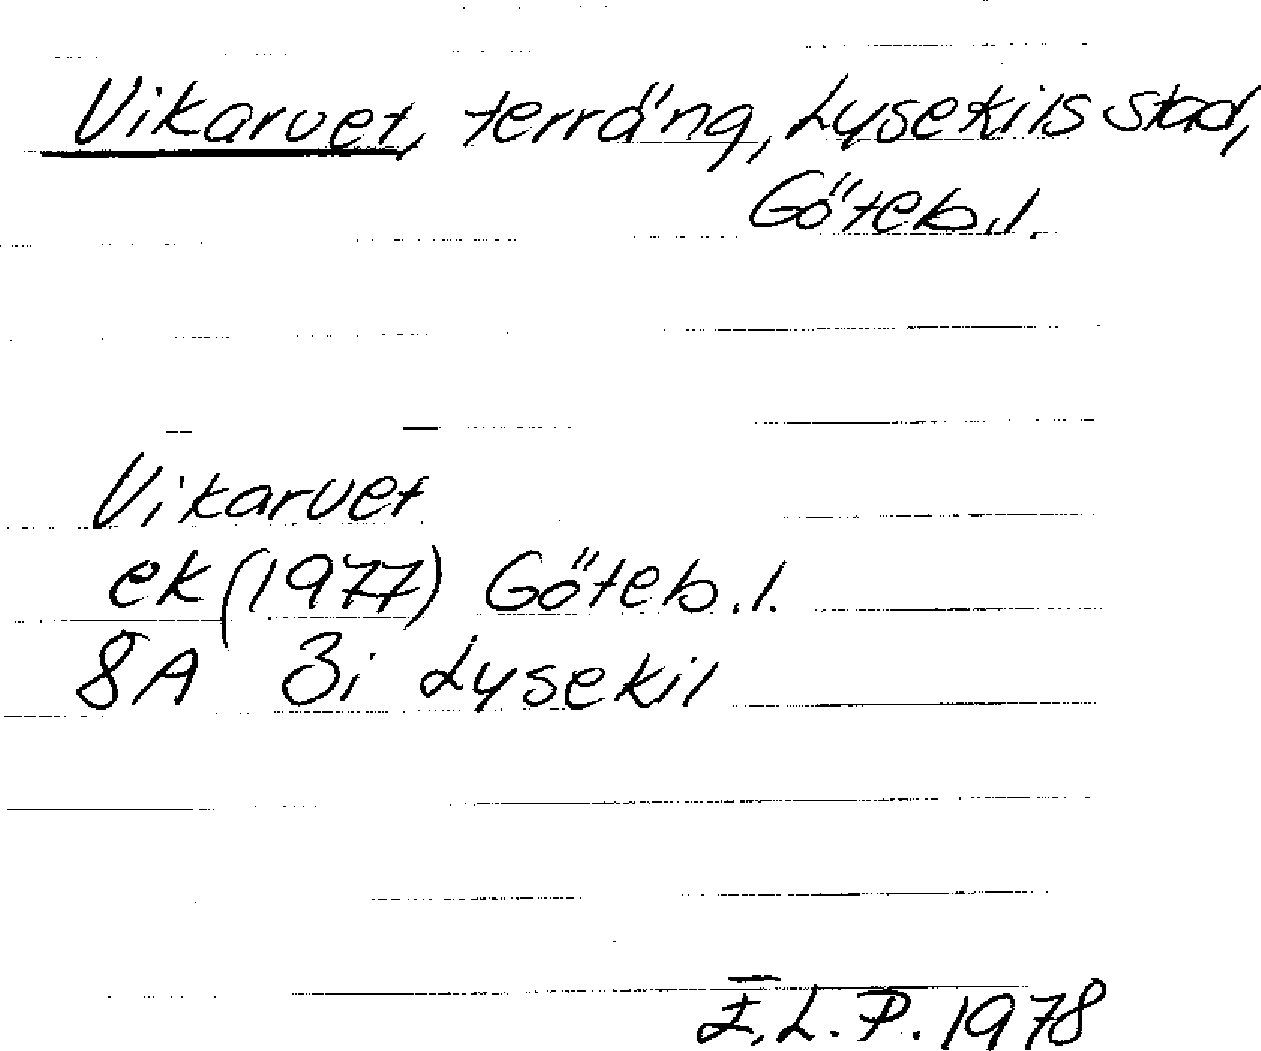 Vikarvet, terräng, Lysekils stad,
Göteb.l.
Vikarvet
ek (1977) Göteb.l.
8A 3i Lysekil
I.L.P. 1978